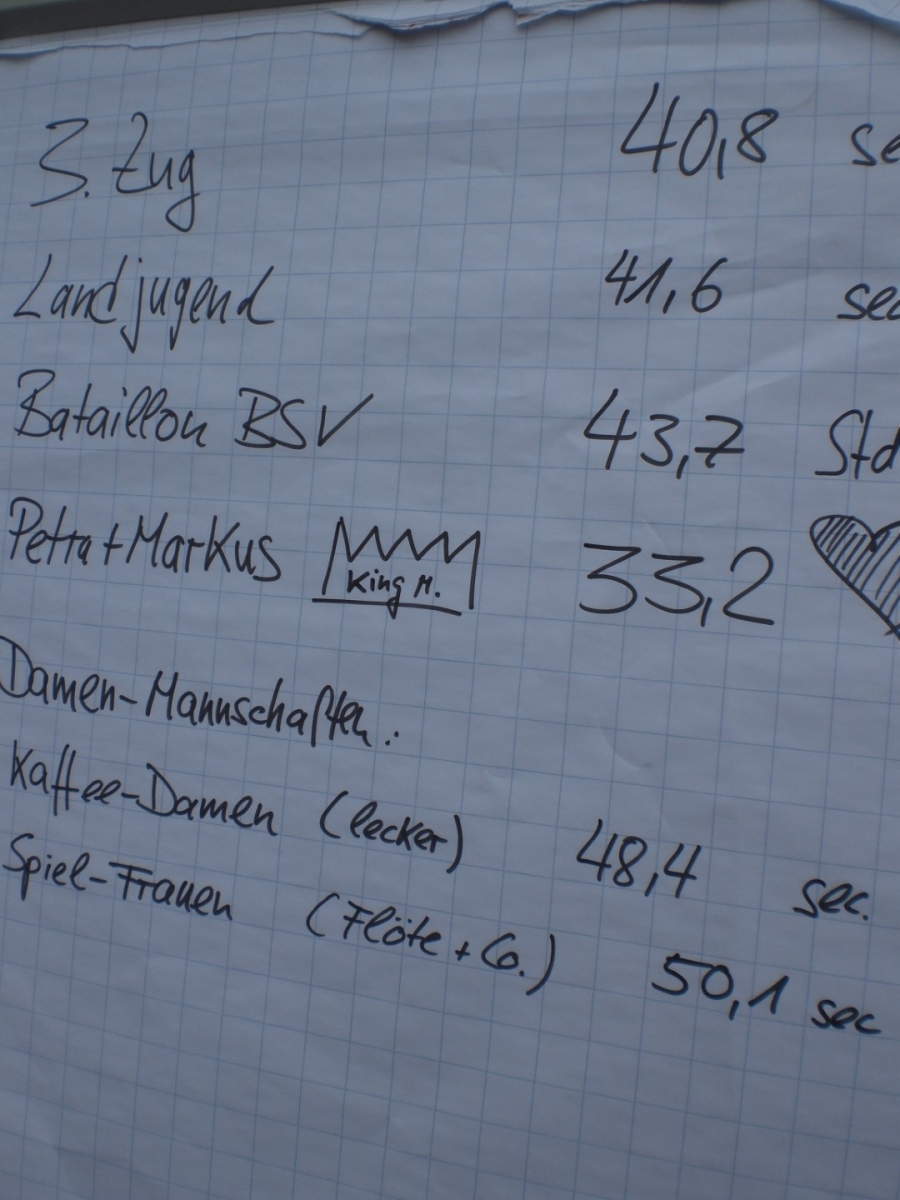 3. Zug 40,8 se
Landjugend 41,6 sec
Bataillon BSV 43,7 Std
Petra + Markus King M. 33,2
Damen-Mannschaften:
Kaffee-Damen (lecker) 48,4 sec.
Spiel-Frauen (Flöte + Co.) 50,1 sec